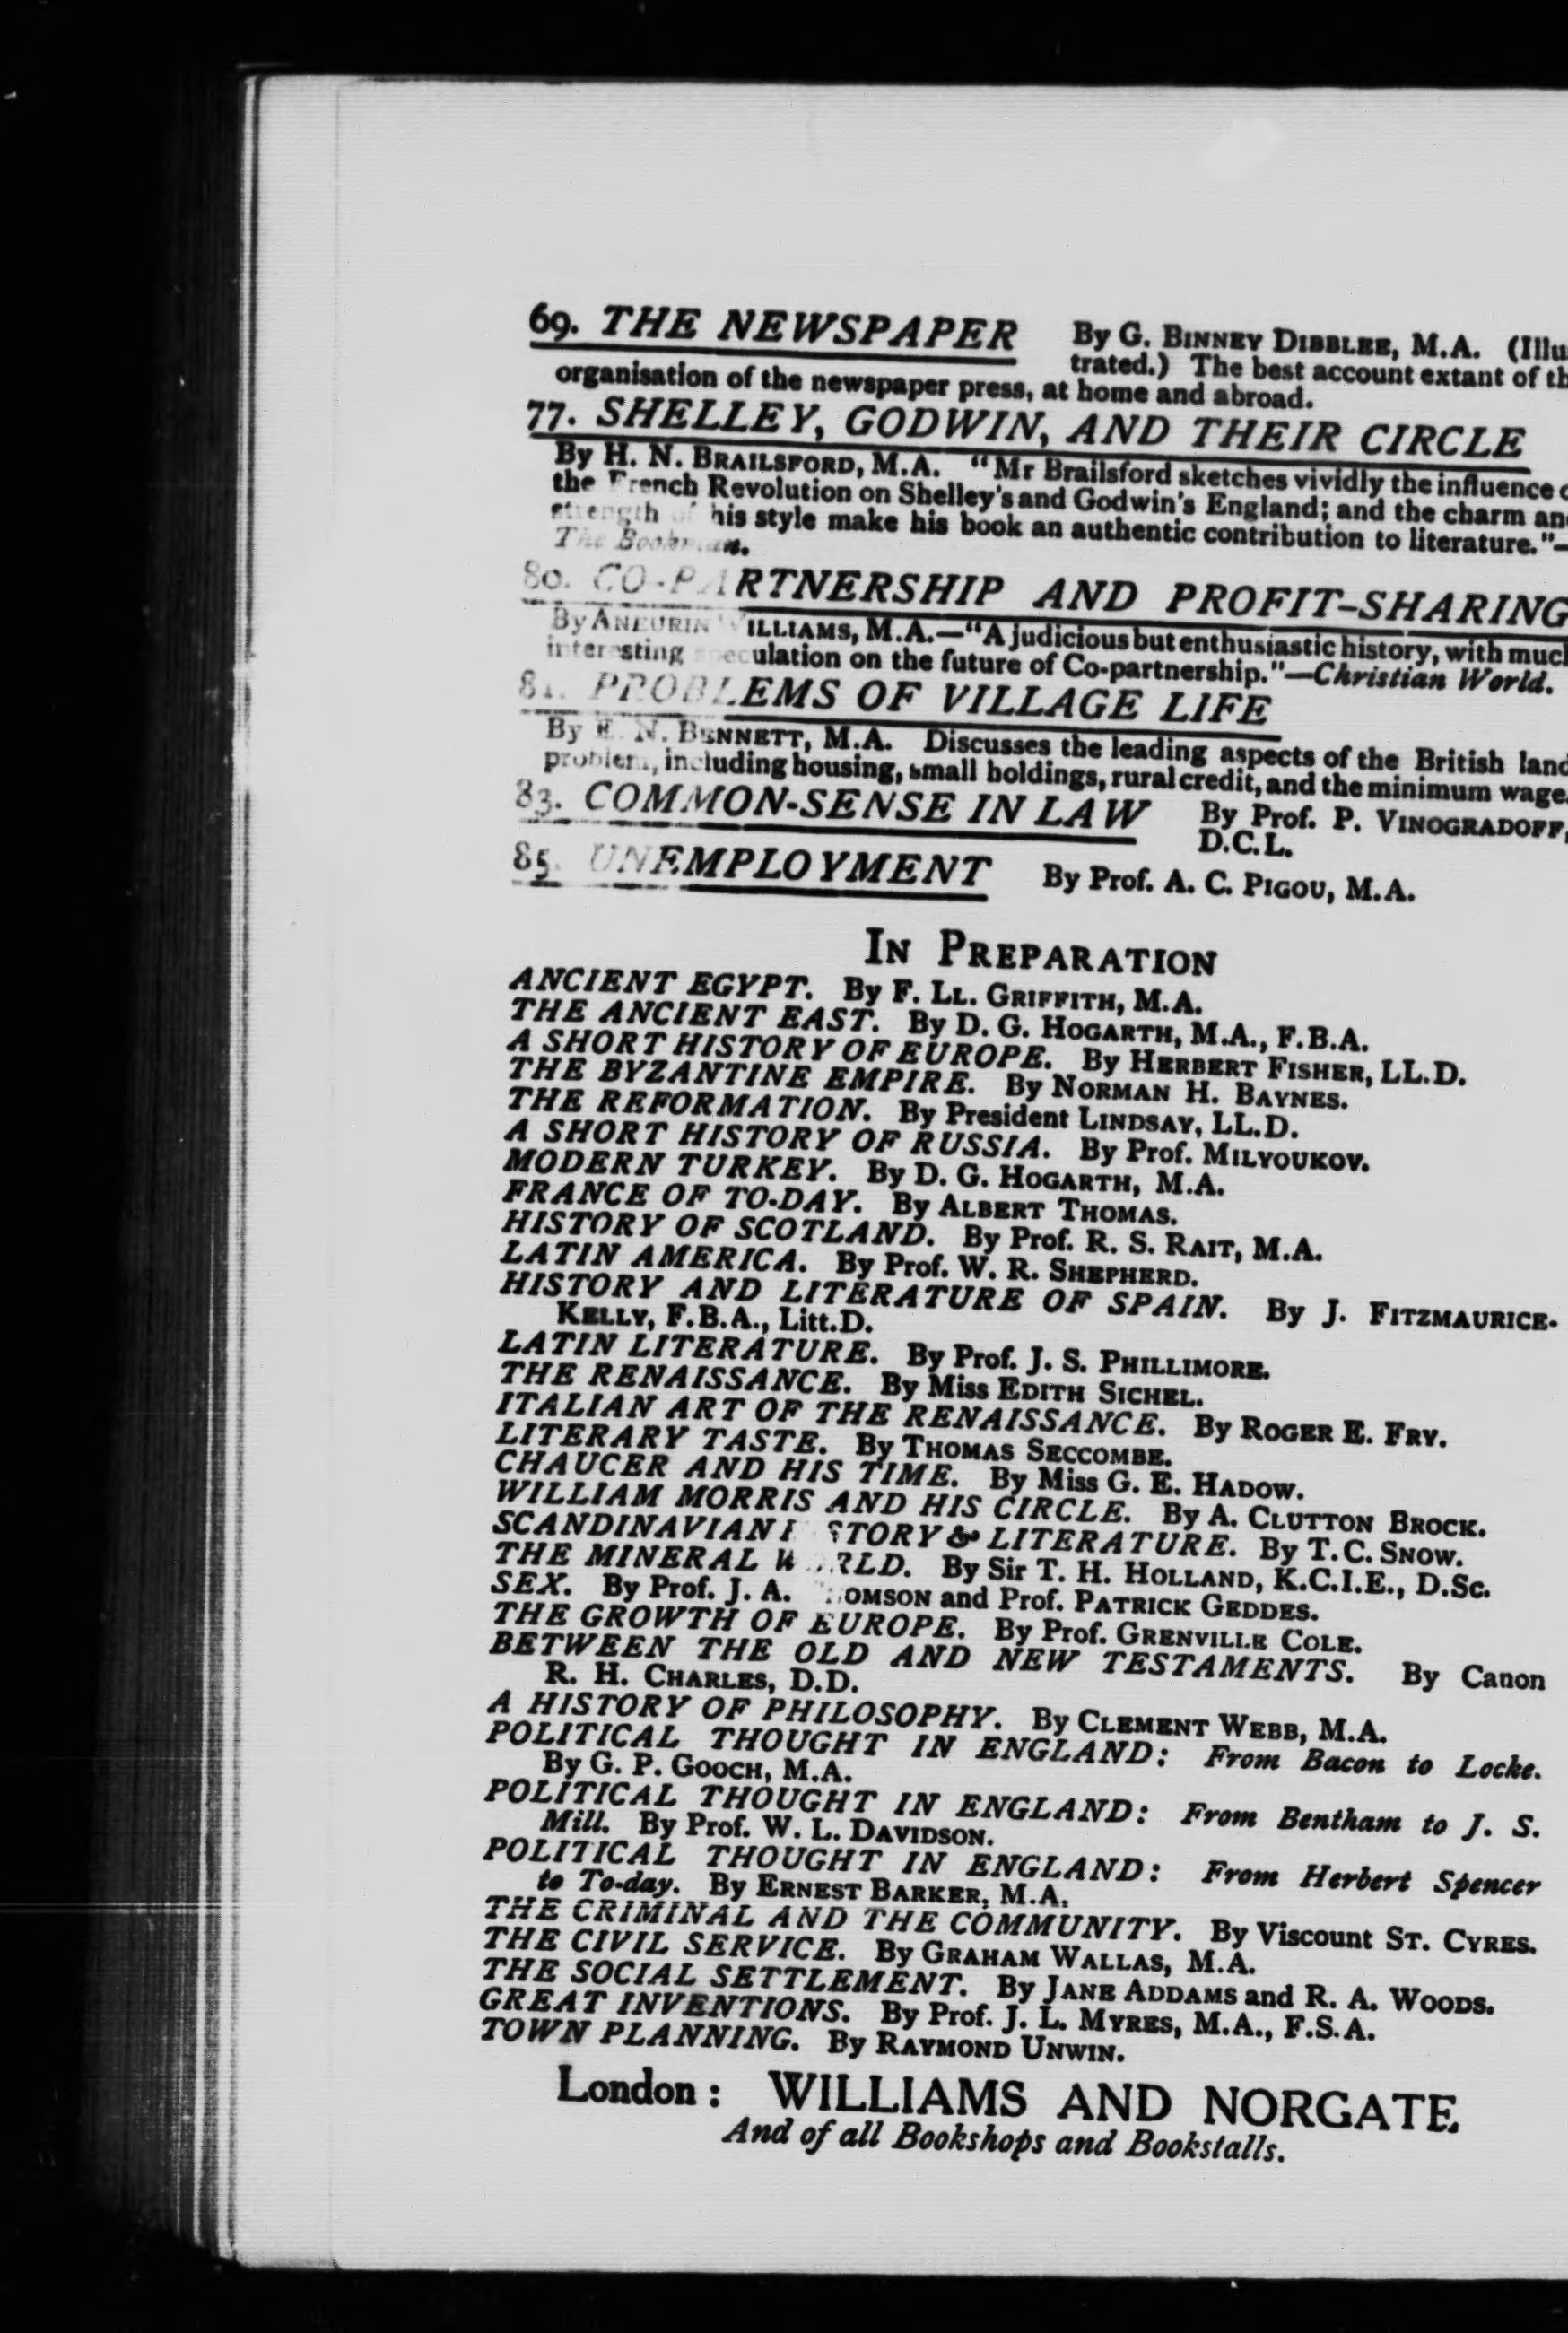 69. THE NEWSPAPER By G. BINNEY DIBBLEE, M.A. (Illu
trated.) The best account extant of th
organisation of the newspaper press, at home and abroad.
77. SHELLEY, GODWIN, AND THEIR CIRCLE
By H. N. BRAILSFORD, M.A. "Mr Brailsford sketches vividly the influence
the French Revolution on Shelley's and Godwin's England; and the charm an
strength of his style make his book an authentic contribution to literature."—
The Bookman.
80. CO-PARTNERSHIP AND PROFIT-SHARING
By ANEURIN WILLIAMS, M.A.—"A judicious but enthusiastic history, with much
interesting speculation on the future of Co-partnership."—Christian World.
81. PROBLEMS OF VILLAGE LIFE
By E. N. BENNETT, M.A. Discusses the leading aspects of the British land
problem, including housing, small holdings, rural credit, and the minimum wage.
83. COMMON-SENSE IN LAW By Prof. P. VINOGRADOFF,
D.C.L.
85. UNEMPLOYMENT By Prof. A. C. PIGOU, M.A.
IN PREPARATION
ANCIENT EGYPT. By F. LL. GRIFFITH, M.A.
THE ANCIENT EAST. By D. G. HOGARTH, M.A., F.B.A.
A SHORT HISTORY OF EUROPE. By HERBERT FISHER, LL.D.
THE BYZANTINE EMPIRE. By NORMAN H. BAYNES.
THE REFORMATION. By President LINDSAY, LL.D.
A SHORT HISTORY OF RUSSIA. By Prof. MILYOUKOV.
MODERN TURKEY. By D. G. HOGARTH, M.A.
FRANCE OF TO-DAY. By ALBERT THOMAS.
HISTORY OF SCOTLAND. By Prof. R. S. RAIT, M.A.
LATIN AMERICA. By Prof. W. R. SHEPHERD.
HISTORY AND LITERATURE OF SPAIN. By J. FITZMAURICE-
KELLY, F.B.A., Litt.D.
LATIN LITERATURE. By Prof. J. S. PHILLIMORE.
THE RENAISSANCE. By Miss EDITH SICHEL.
ITALIAN ART OF THE RENAISSANCE. By ROGER E. FRY.
LITERARY TASTE. By THOMAS SECCOMBE.
CHAUCER AND HIS TIME. By Miss G. E. HADOW.
WILLIAM MORRIS AND HIS CIRCLE. By A. CLUTTON BROCK.
SCANDINAVIAN HISTORY & LITERATURE. By T. C. SNOW.
THE MINERAL WORLD. By Sir T. H. HOLLAND, K.C.I.E., D.Sc.
SEX. By Prof. J. A. THOMSON and Prof. PATRICK GEDDES.
THE GROWTH OF EUROPE. By Prof. GRENVILLE COLE.
BETWEEN THE OLD AND NEW TESTAMENTS. By Canon
R. H. CHARLES, D.D.
A HISTORY OF PHILOSOPHY. By CLEMENT WEBB, M.A.
POLITICAL THOUGHT IN ENGLAND: From Bacon to Locke.
By G. P. GOOCH, M.A.
POLITICAL THOUGHT IN ENGLAND: From Bentham to J. S.
Mill. By Prof. W. L. DAVIDSON.
POLITICAL THOUGHT IN ENGLAND: From Herbert Spencer
to To-day. By ERNEST BARKER, M.A.
THE CRIMINAL AND THE COMMUNITY. By Viscount ST. CYRES.
THE CIVIL SERVICE. By GRAHAM WALLAS, M.A.
THE SOCIAL SETTLEMENT. By JANE ADDAMS and R. A. WOODS.
GREAT INVENTIONS. By Prof. J. L. MYRES, M.A., F.S.A.
TOWN PLANNING. By RAYMOND UNWIN.
London: WILLIAMS AND NORGATE
And of all Bookshops and Bookstalls.